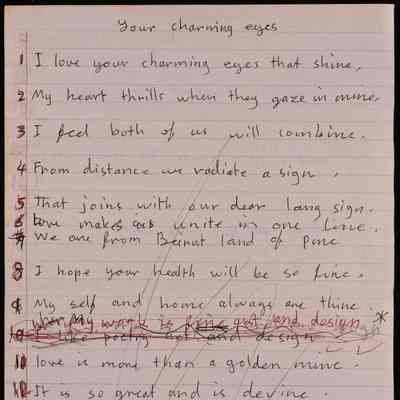 Your charming eyes
1 I love your charming eyes that shine,
2 My heart thrills when they gaze in mine
3 I feel both of us will combine.
4 From distance we radiate a sign.
5 That joins with our dear lang sign.
6 love makes us unite in one line.
We are from Beirut land of pine
8 I hope your health will be so fine.
9 My self and home always are thine
my work is fine art and design
I like poetry art and design
10 love is more than a golden mine.
It is so great and is devine.